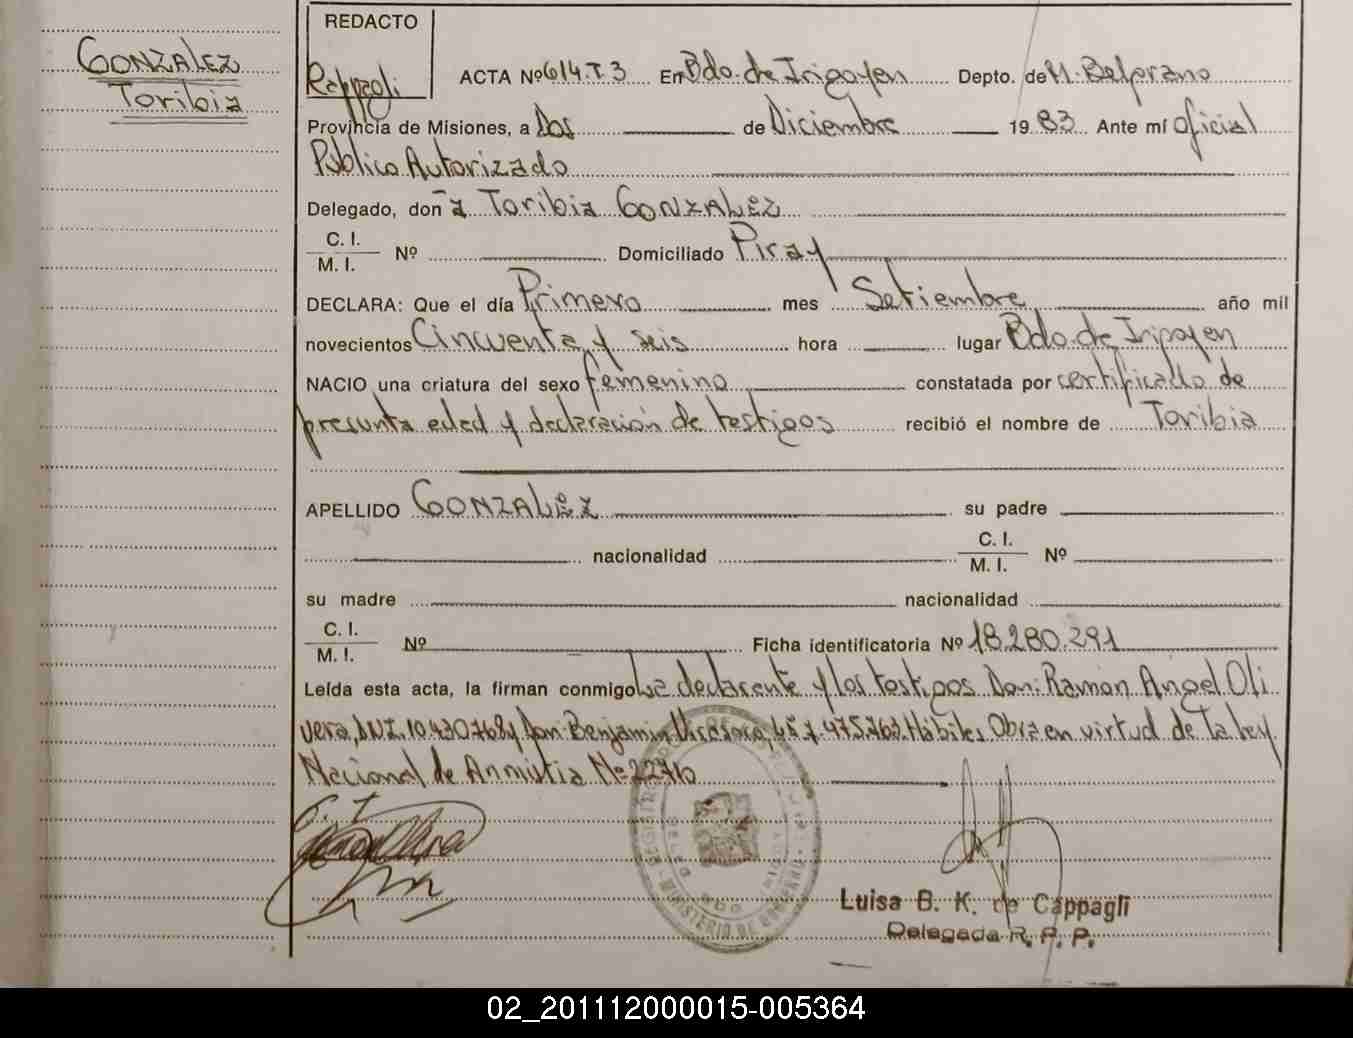 GONZALEZ
Toribia
REDACTO
Cappagli
ACTA Nº 614.T.3 En Bdo. de Irigoyen Depto. de M. Belgrano
Provincia de Misiones, a Dos de Diciembre 19 83 Ante mí Oficial
Público Autorizado
Delegado, doña Toribia GONZALEZ
C. I.
M. I. Nº Domiciliado Piray
DECLARA: Que el día Primero mes Setiembre año mil
novecientos Cincuenta y seis hora lugar Bdo. de Irigoyen
NACIO una criatura del sexo femenino constatada por certificado de
presunta edad y declaración de testigos recibió el nombre de Toribia
APELLIDO GONZALEZ su padre
nacionalidad C. I.
M. I. Nº
su madre nacionalidad
C. I.
M. I. Nº Ficha identificatoria Nº 18.280.291
Leída esta acta, la firman conmigo La declarante y los testigos Don: Ramon Angel Oli
vera, DNI. 10.430.768 y Don: Benjamin 7.475.763. Hábiles. Obra en virtud de la ley
Nacional de Anmistia Nº
REGISTRO
MINISTERIO DE GOBIERNO
Luisa B. K. de Cappagli
Delegada R. P. P.
02_201112000015-005364